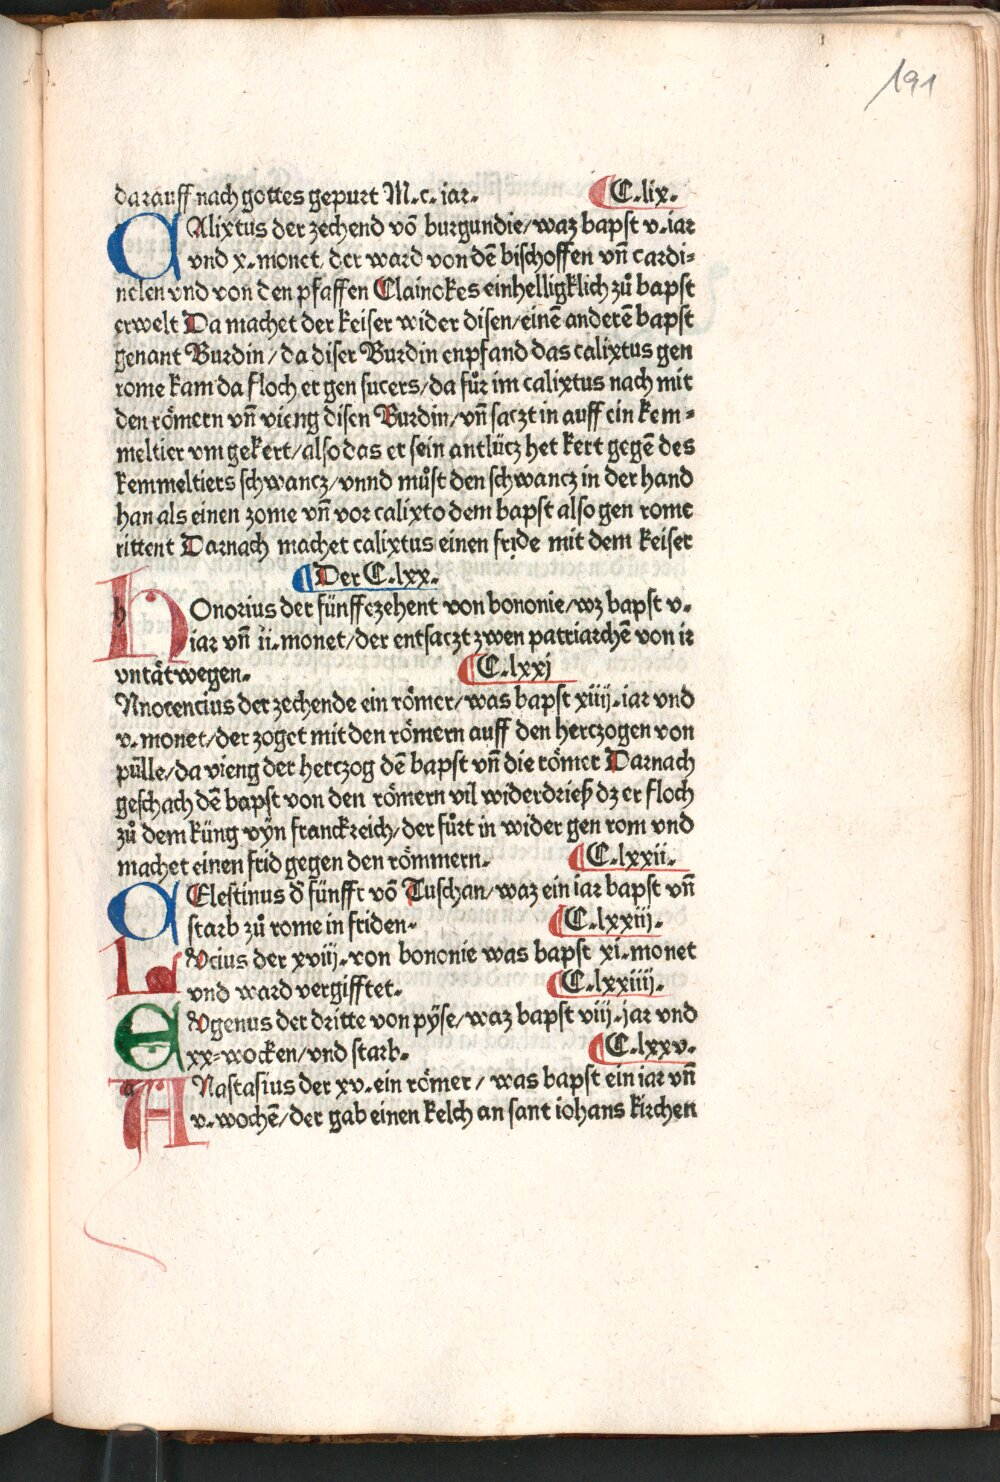 191
darauff nach gottes gepurt M.c. iar. C.lix.
CAlixtus der zechend võ burgundie/waz bapst v.iar
vnd x.monet, der ward von dẽ bischoffen vñ cardi=
nelen vnd von den pfaffen Clainckes einhelligklich zů bapst
erwelt Da machet der keiser wider disen/einẽ anderẽ bapst
genant Burdin/da diser Burdin enpfand das calixtus gen
rome kam da floch er gen sucers/da fůr im calixtus nach mit
den rômern vñ vieng disen Burdin/vñ saczt in auff ein kem=
meltier vmgekert/also das er sein antlücz het kert gegẽ des
kemmeltiers schwancz/vnnd můst den schwancz in der hand
han als einen zome vñ vor calixto dem bapst also gen rome
rittent Darnach machet calixtus einen fride mit dem keiser
Der C.lxx.
HOnorius der fünffczehent von bononie/wz bapst v.
iar vñ ii.monet/der entsaczt zwen patriarchẽ von ir
vntåt wegen. C.lxxj
Nnocencius der zechende ein rômer/was bapst xiiij.iar vnd
v.monet/der zoget mit den rômern auff den herczogen von
pülle/da vieng der herczog dẽ bapst vñ die rômer Darnach
geschach dẽ bapst von den rômern vil widerdrieß dz er floch
zů dem küng vyn franckreich/der fůrt in wider gen rom vnd
machet einen frid gegen den rômmern. C.lxxii.
CElestinus đ fünfft võ Tuschan/waz ein iar bapst vñ
starb zů rome in friden. C.lxxiij.
LVcius der xviij.von bononie was bapst xi.monet
vnd ward vergifftet. C.lxxiiij.
EVgenus der dritte von pÿse/waz bapst viij.jar vnd
xx=wocken/vnd starb. C.lxxv.
ANastasius der xv.ein rômer/was bapst ein iar vñ
v.wochẽ/der gab einen kelch an sant iohans kirchen